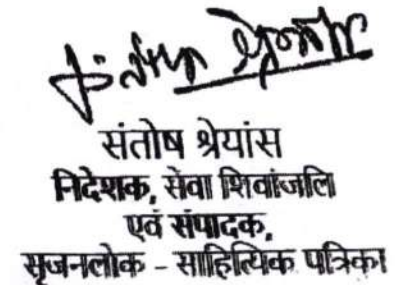 संतोष श्रेयांस
निदेशक, सेवा शिवांजलि
एवं संपादक,
सृजनलोक - साहित्यिक पत्रिका